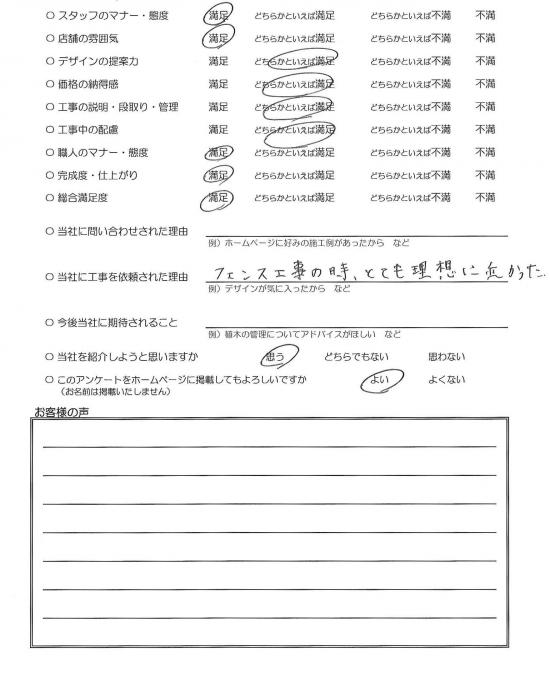 ○ スタッフのマナー・態度 満足 どちらかといえば満足 どちらかといえば不満 不満
○ 店舗の雰囲気 満足 どちらかといえば満足 どちらかといえば不満 不満
○ デザインの提案力 満足 どちらかといえば満足 どちらかといえば不満 不満
○ 価格の納得感 満足 どちらかといえば満足 どちらかといえば不満 不満
○ 工事の説明・段取り・管理 満足 どちらかといえば満足 どちらかといえば不満 不満
○ 工事中の配慮 満足 どちらかといえば満足 どちらかといえば不満 不満
○ 職人のマナー・態度 満足 どちらかといえば満足 どちらかといえば不満 不満
○ 完成度・仕上がり 満足 どちらかといえば満足 どちらかといえば不満 不満
○ 総合満足度 満足 どちらかといえば満足 どちらかといえば不満 不満
○ 当社に問い合わせされた理由
例）ホームページに好みの施工例があったから など
○ 当社に工事を依頼された理由 フェンス工事の時、とても理想に近かった。
例）デザインが気に入ったから など
○ 今後当社に期待されること
例）植木の管理についてアドバイスがほしい など
○ 当社を紹介しようと思いますか 思う どちらでもない 思わない
○ このアンケートをホームページに掲載してもよろしいですか よい よくない
（お名前は掲載いたしません）
お客様の声